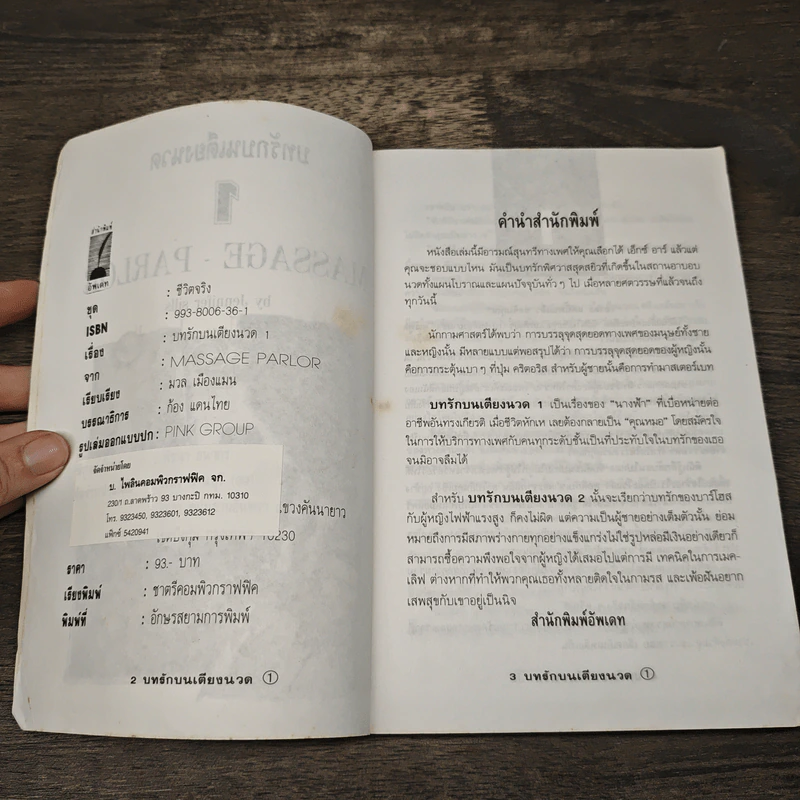 สำนักพิมพ์
อัพเดท
ชุด : ชีวิตจริง
ISBN : 993-8006-36-1
เรื่อง : บทรักบนเตียงนวด 1
จาก : MASSAGE PARLOR
เรียบเรียง : มวล เมืองแมน
บรรณาธิการ : ก้อง แดนไทย
รูปเล่มออกแบบปก : PINK GROUP
จัดจำหน่ายโดย
บ. ไพลินคอมพิวกราฟฟิค จก.
230/1 ถ.ลาดพร้าว 93 บางกะปิ กทม. 10310
โทร. 9323450, 9323601, 9323612
แฟ็กซ์ 5420941
แขวงคันนายาว
10230
ราคา : 93.- บาท
เรียงพิมพ์ : ชาตรีคอมพิวกราฟฟิค
พิมพ์ที่ : อักษรสยามการพิมพ์
2 บทรักบนเตียงนวด ①
คำนำสำนักพิมพ์
หนังสือเล่มนี้มีอารมณ์สุนทรีทางเพศให้คุณเลือกได้ เอ็กซ์ อาร์ แล้วแต่
คุณจะชอบแบบไหน มันเป็นบทรักพิศวาสสุดสยิวที่เกิดขึ้นในสถานอาบอบ
นวดทั้งแผนโบราณและแผนปัจจุบันทั่ว ๆ ไป เมื่อหลายศตวรรษที่แล้วจนถึง
ทุกวันนี้
นักกามศาสตร์ได้พบว่า การบรรลุจุดสุดยอดทางเพศของมนุษย์ทั้งชาย
และหญิงนั้น มีหลายแบบแต่พอสรุปได้ว่า การบรรลุจุดสุดยอดของผู้หญิงนั้น
คือการกระตุ้นเบา ๆ ที่ปุ่ม คริตอริส สำหรับผู้ชายนั้นคือการทำมาสเตอร์เบท
บทรักบนเตียงนวด 1 เป็นเรื่องของ "นางฟ้า" ที่เบื่อหน่ายต่อ
อาชีพอันทรงเกียรติ เมื่อชีวิตหักเห เลยต้องกลายเป็น "คุณหมอ" โดยสมัครใจ
ในการให้บริการทางเพศกับคนทุกระดับชั้นเป็นที่ประทับใจในบทรักของเธอ
จนมิอาจลืมได้
สำหรับ บทรักบนเตียงนวด 2 นั้นจะเรียกว่าบทรักของบาร์โฮส
กับผู้หญิงไฟฟ้าแรงสูง ก็คงไม่ผิด แต่ความเป็นผู้ชายอย่างเต็มตัวนั้น ย่อม
หมายถึงการมีสภาพร่างกายทุกอย่างแข็งแกร่งไม่ใช่รูปหล่อมีเงินอย่างเดียวก็
สามารถซื้อความพึงพอใจจากผู้หญิงได้เสมอไปแต่การมี เทคนิคในการเมค-
เลิฟ ต่างหากที่ทำให้พวกคุณเธอทั้งหลายติดใจในกามรส และเพ้อฝันอยาก
เสพสุขกับเขาอยู่เป็นนิจ
สำนักพิมพ์อัพเดท
3 บทรักบนเตียงนวด ①